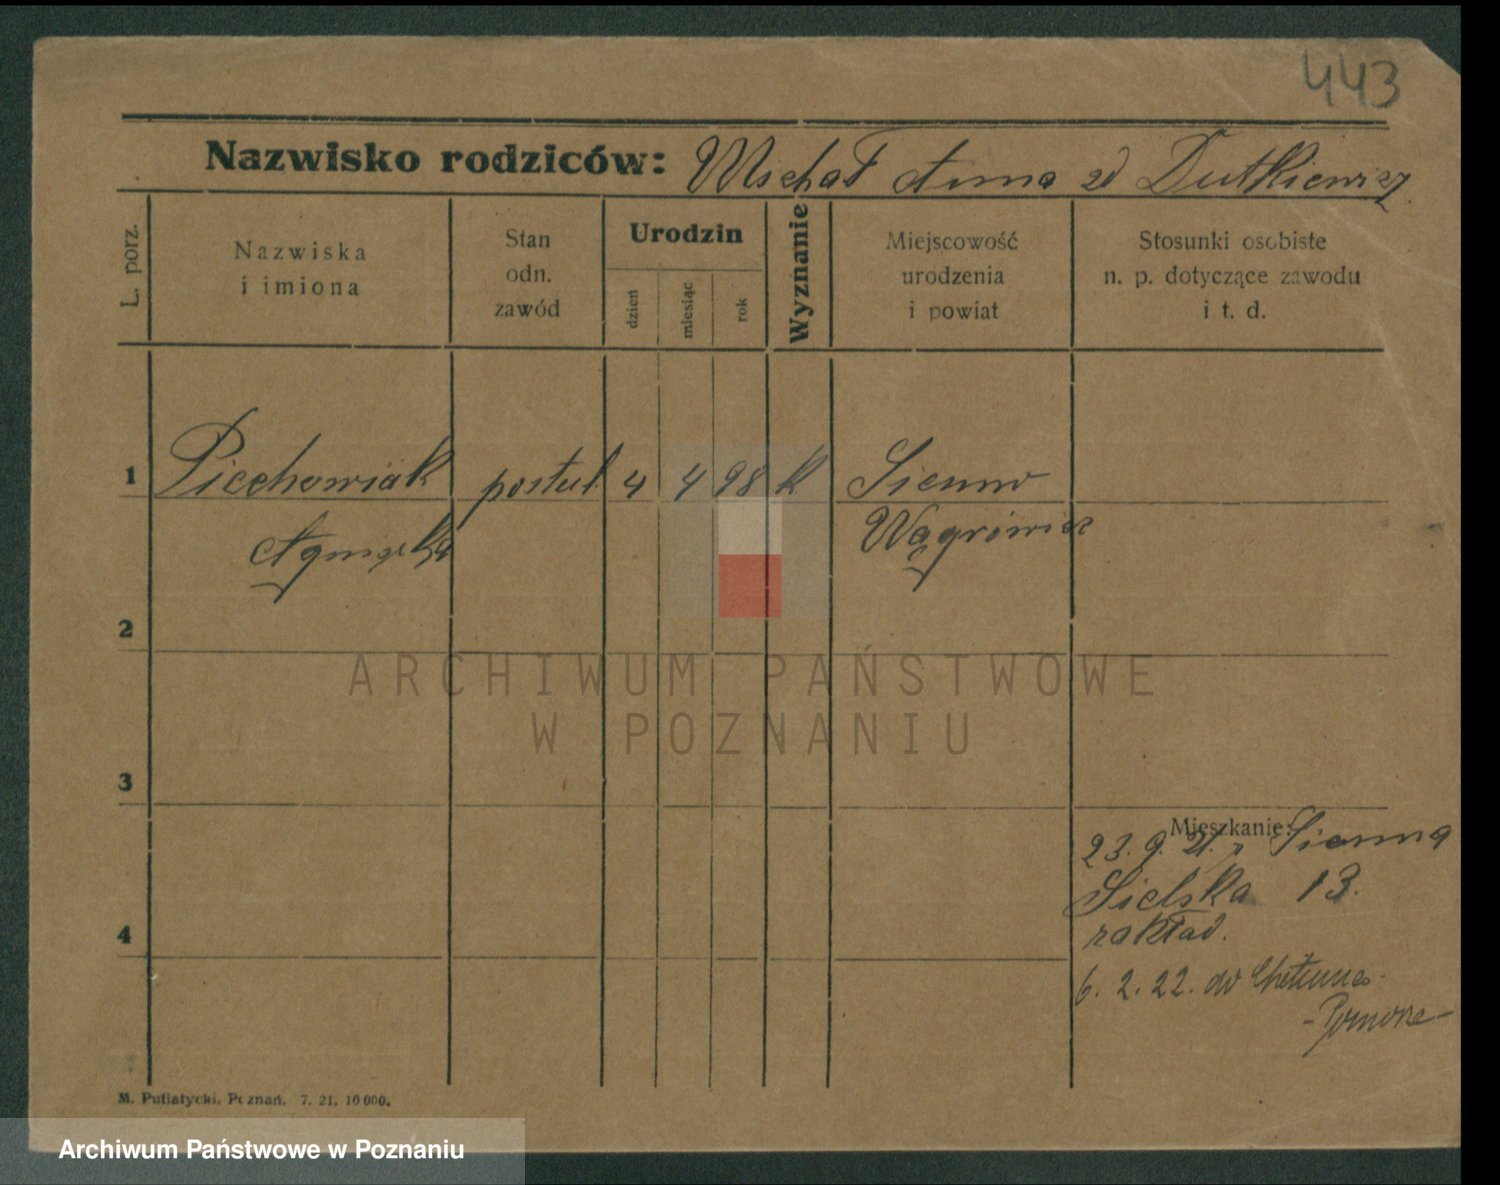 443
Nazwisko rodziców: Michał Anna zd Dutkiewicz.
L. porz.
Nazwiska i imiona
Stan odn. zawód
Urodzin
dzień
miesiąc
rok
Wyznanie
Miejscowość urodzenia i powiat
Stosunki osobiste n. p. dotyczące zawodu i t. d.
1 Piechowiak postul 4 4 98 k Sienno
Agnieszka Wągrówiec
2
ARCHIWUM PAŃSTWOWE
W POZNANIU
3
Mieszkanie:
23. 9. 21. z Sienna
Sielska 13.
zakład.
4
6. 2. 22. do Chełmna
- Pomorze -
M. Putiatycki. Poznań. 7. 21. 10 000.
Archiwum Państwowe w Poznaniu